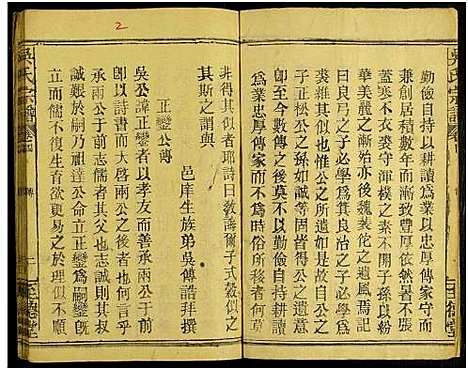 吳氏宗譜
勤儉自持以耕讀爲業以忠厚傳家守而
兼創居積數年而漸致豐厚依然暑不張
蓋冬不衣裘守渾樸之素不開子孫以紛
華美麗之漸殆亦後魏裴佗之遺風焉記
曰良弓之子必學爲箕良冶之子必學爲
裘言相似也惟公之所遺如是故自公之
子正松公之後莫不恪守公之遺意
傳數傳之後莫不以勤儉自持耕讀
爲業忠厚傳家而不爲時俗所移者何草
非得其似者耶詩曰敎誨爾子式穀似之
其斯之謂與
邑庠生族弟吳傳誥拜撰
正鑾公傳
吳公諱正鑾者以孝友而善承兩公于前
卽以詩書而大啓兩公之後者也何以言
承兩公于前志儒者其父也志誠則其叔
誠艱於嗣乃祖遺命以正鑾爲嗣鑾旣
立而儒不復生育欲更易之於理似不順
吳氏宗譜
傳
二
至德堂
2